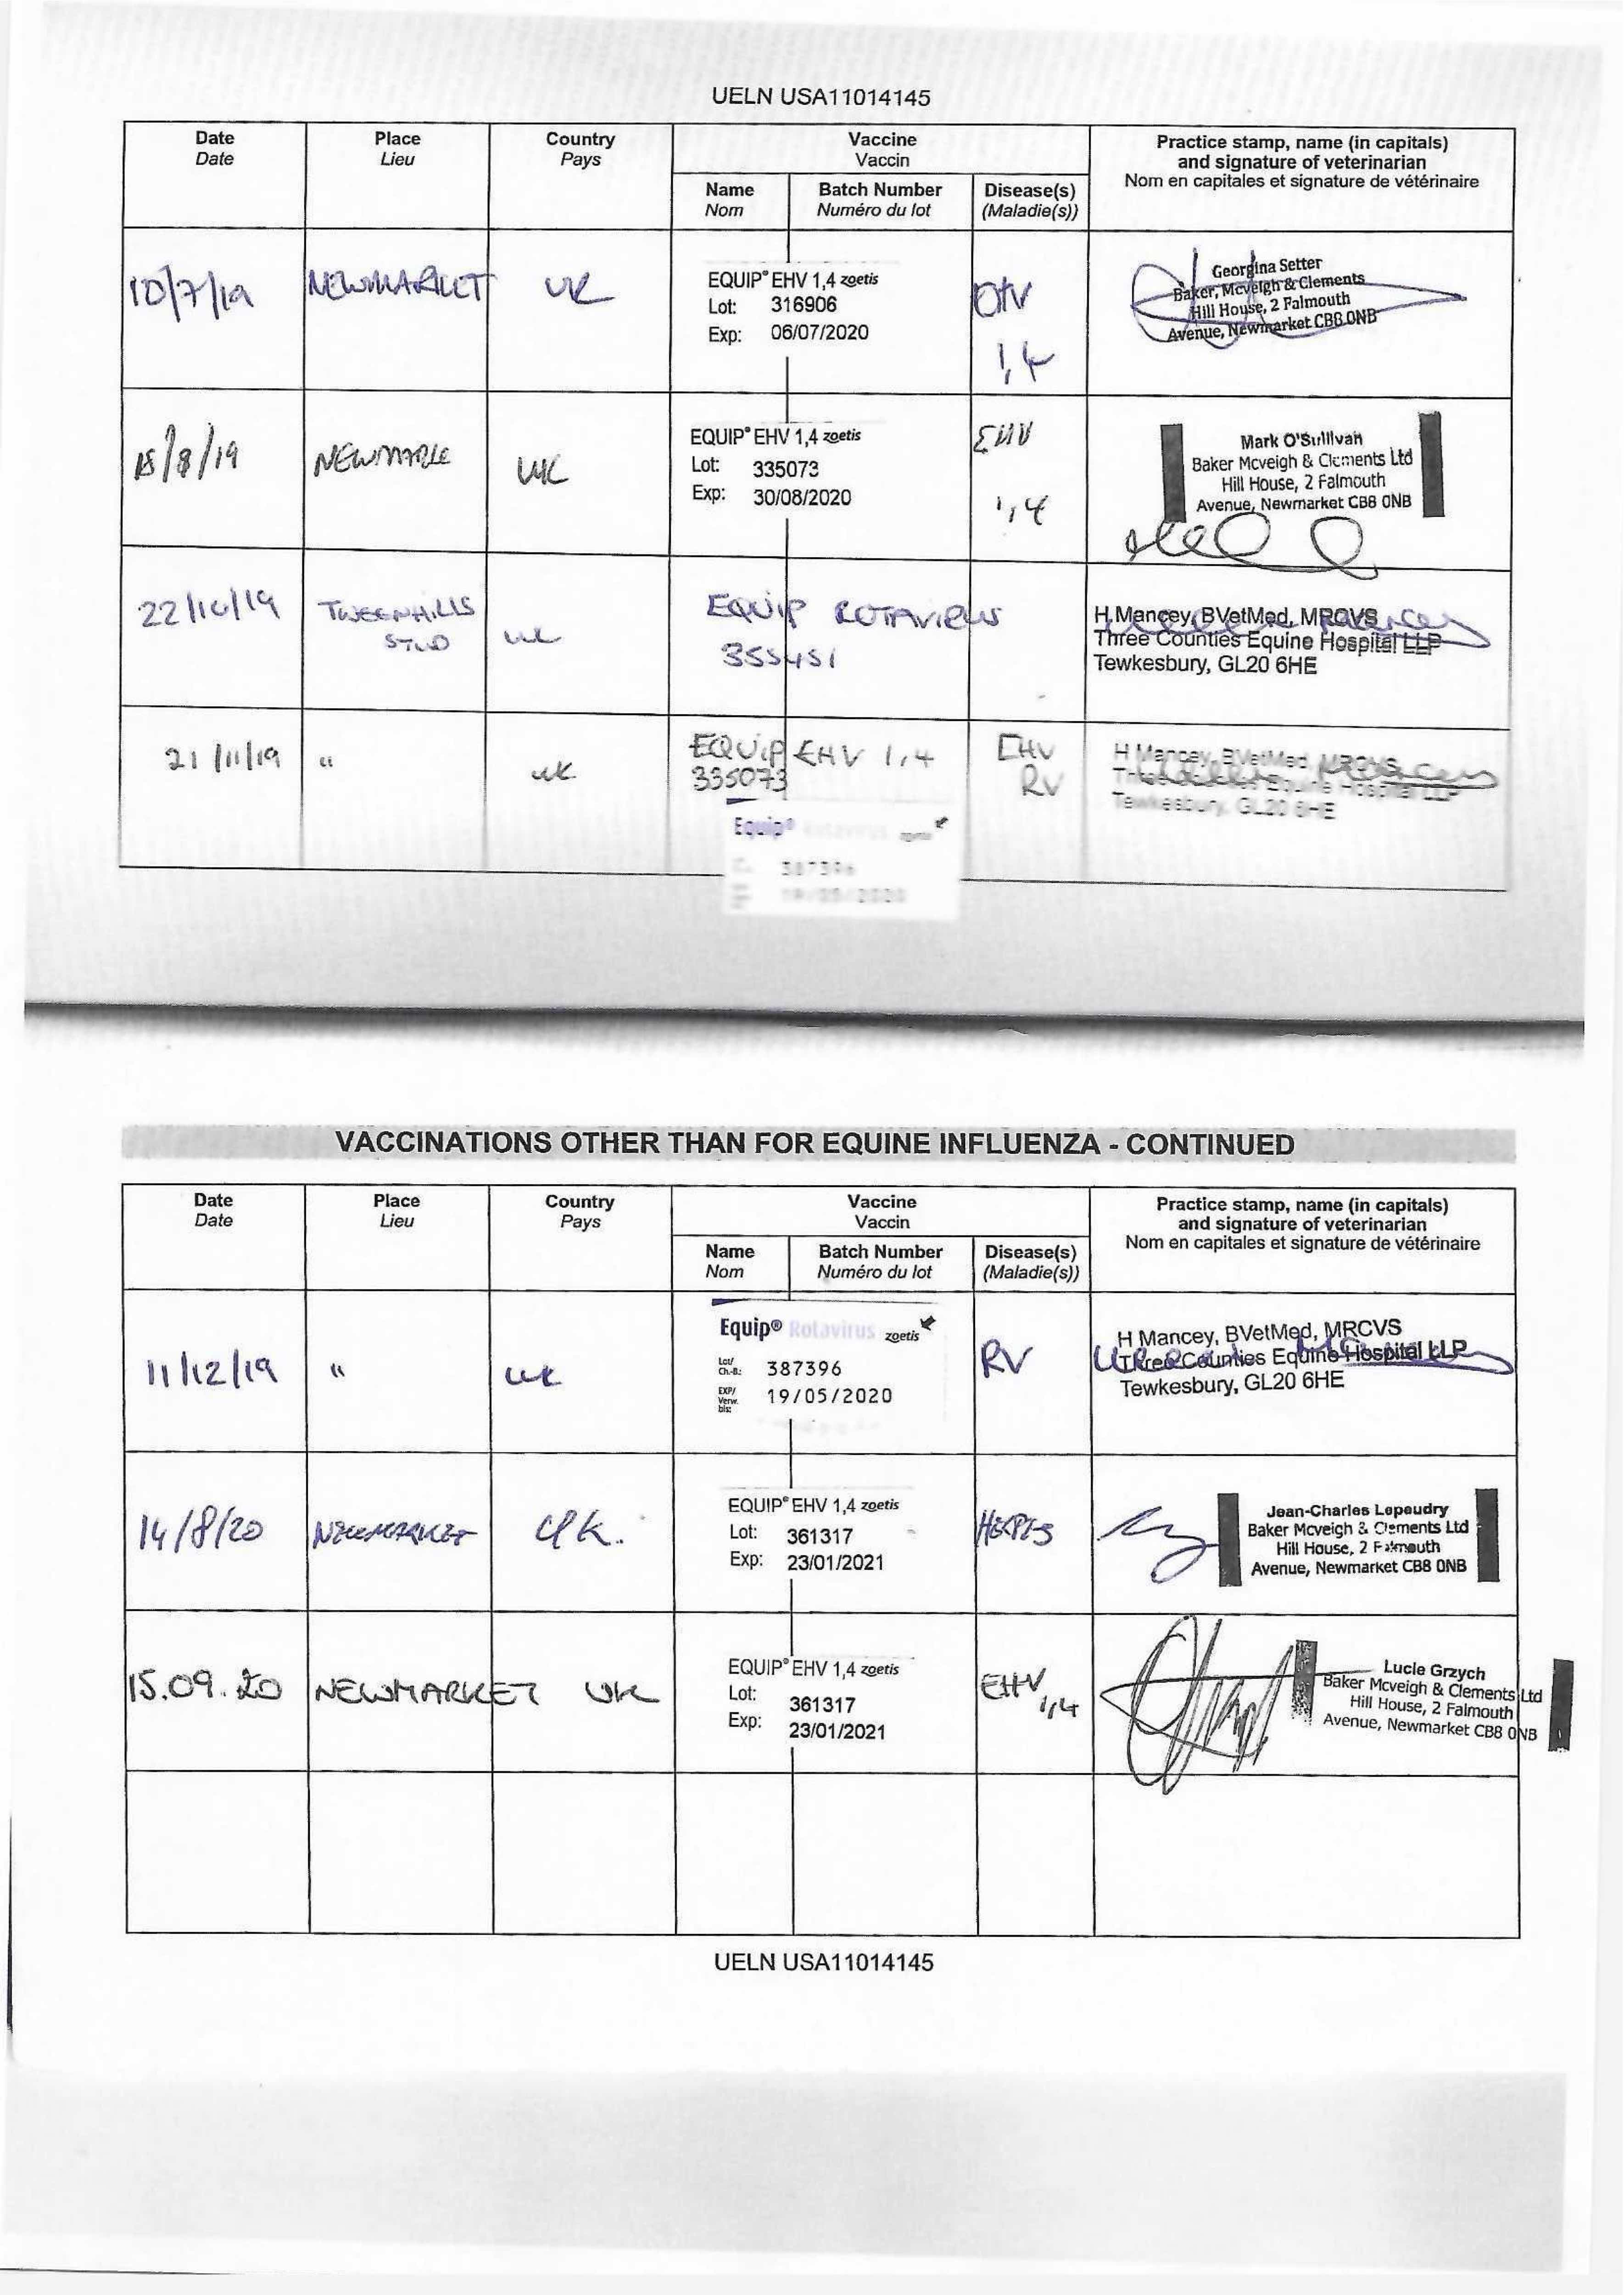 UELN USA11014145
Date Place Country Vaccine Practice stamp, name (in capitals)
Date Lieu Pays Vaccin and signature of veterinarian
Nom en capitales et signature de vétérinaire
Name Batch Number Disease(s)
Nom Numéro du lot (Maladie(s))
10/7/19 NEWMARKET UK
EQUIP® EHV 1,4 zoetis
Lot: 316906
Exp: 06/07/2020
1,4
Georgina Setter
Baker, Mcveigh & Clements
Hill House, 2 Falmouth
Avenue, Newmarket CB8 0NB
/8/19 UK
EQUIP® EHV 1,4 zoetis
Lot: 335073
Exp: 30/08/2020
EHV
1,4
Mark O'Sullivan
Baker Mcveigh & Clements Ltd
Hill House, 2 Falmouth
Avenue, Newmarket CB8 0NB
22/10/19 TWEENHILLS
STUD UK
EQUIP ROTAVIRUS
355451
H Mancey, BVetMed, MRCVS
Three Counties Equine Hospital LLP
Tewkesbury, GL20 6HE
21/11/19 " UK
EQUIP EHV 1,4
335073
EHV
RV
Equip® Rotavirus zoetis
387396
19/05/2020
H Mancey, BVetMed, MRCVS
Three Counties Equine Hospital LLP
Tewkesbury, GL20 6HE
VACCINATIONS OTHER THAN FOR EQUINE INFLUENZA - CONTINUED
Date Place Country Vaccine Practice stamp, name (in capitals)
Date Lieu Pays Vaccin and signature of veterinarian
Nom en capitales et signature de vétérinaire
Name Batch Number Disease(s)
Nom Numéro du lot (Maladie(s))
11/12/19 " UK
Equip® Rotavirus zoetis
Lot/
Ch.-B.: 387396
EXP/
Verw.
bis: 19/05/2020
RV
H Mancey, BVetMed, MRCVS
Three Counties Equine Hospital LLP
Tewkesbury, GL20 6HE
14/8/20 NEWMARKET UK.
EQUIP® EHV 1,4 zoetis
Lot: 361317
Exp: 23/01/2021
HERPES
Jean-Charles Lepeudry
Baker Mcveigh & Clements Ltd
Hill House, 2 Falmouth
Avenue, Newmarket CB8 0NB
15.09.20 NEWMARKET UK
EQUIP® EHV 1,4 zoetis
Lot: 361317
Exp: 23/01/2021
EHV
1,4
Lucie Grzych
Baker Mcveigh & Clements Ltd
Hill House, 2 Falmouth
Avenue, Newmarket CB8 0NB
UELN USA11014145